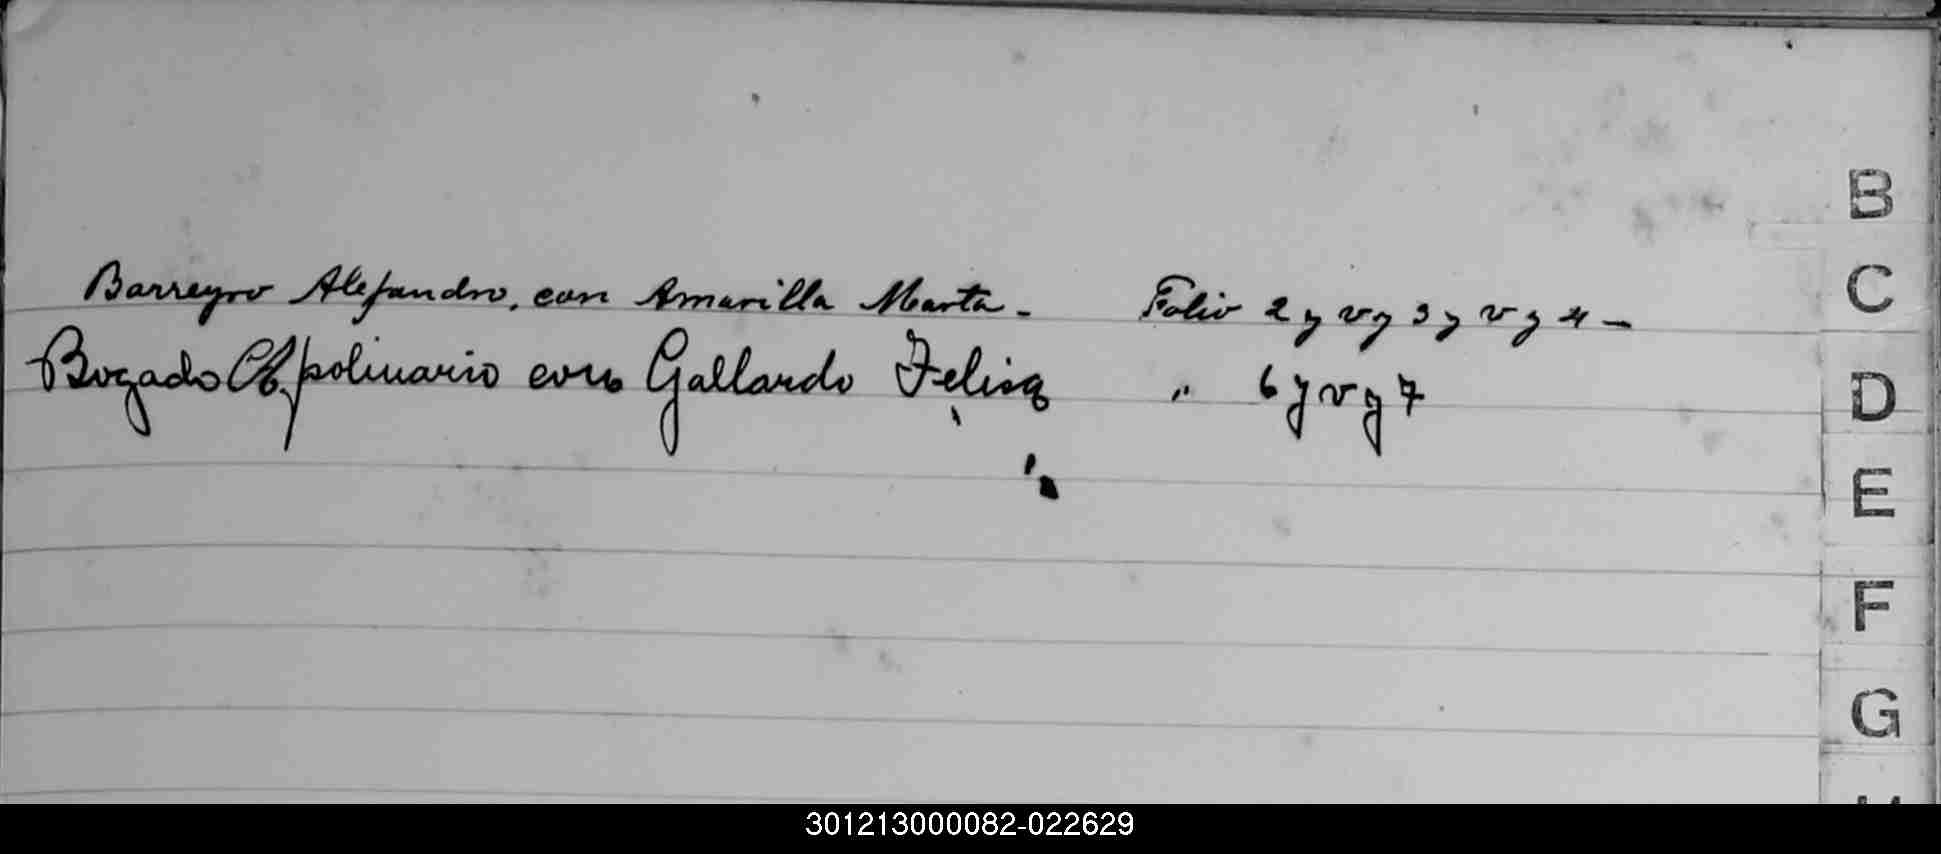 B
C
Barreyro Alejandro, con Amarilla Marta - Folio 2 y v y 3 y v y 4 -
Bogado Apolinario con Gallardo Felisa " 6 y v y 7
D
E
F
G
301213000082-022629